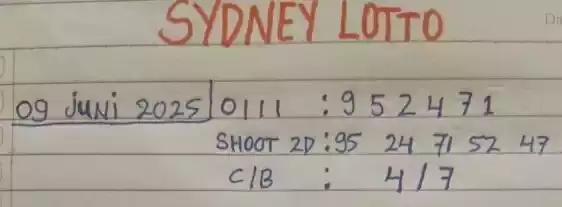 SYDNEY LOTTO
09 JUNI 2025 0111 : 9 5 2 4 7 1
SHOOT 2D : 95 24 71 52 47
C/B : 4/7